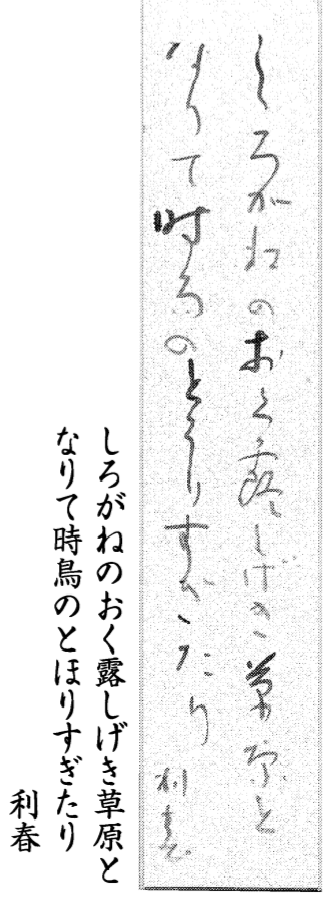 しろがねのおく露しげき草原と
なりて時鳥のとほりすぎたり
利春
しろがねのおく露しげき草原と
なりて時鳥のとほりすぎたり
利春